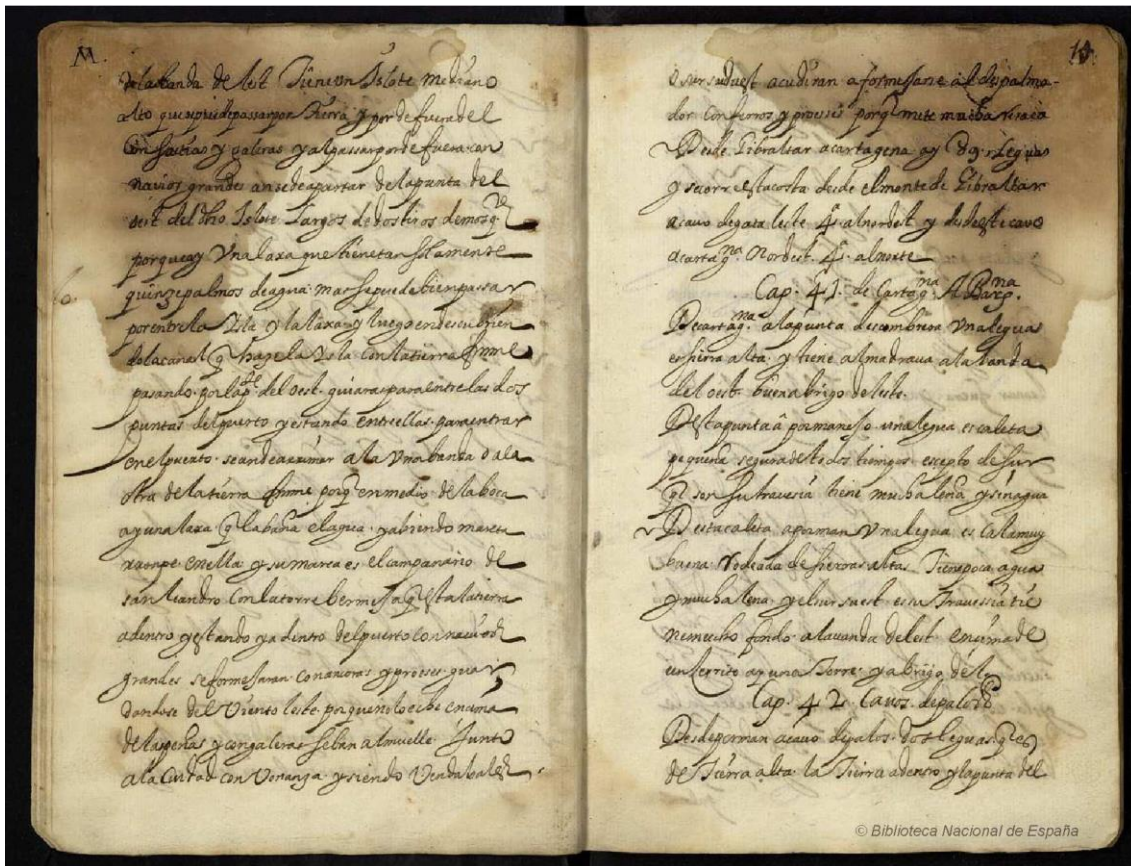 M.
de la banda de lest Tiene un Islote mediano
alto que se puede passar por Tierra y por de fuera del
Con saetias y galeras y al passar por de fuera con
navios grandes an se de apartar de la punta del
dho Islote Largos dedos tiros de mosq.te
por que ay Una laxa que tiene tan solamente
quinze palmos de agua mas se puede bien passar
por entre la Isla y la laxa y luego en descubrien
do la canal q haze la Isla con la tierra firme
pasando por la p.te del oest guiaras para entre las dos
puntas del puerto y estando entre ellas para entrar
en el puerto se an de arrimar a la Una banda o a la
otra de la tierra firme porq en medio de la boca
ay una laxa q la baña el agua y abiendo mareta
rompe en ella y su marca es el campanario de
san leandro Con la torre bermeja q esta la tierra
adentro y estando ya dentro del puerto con navios
grandes se formejaran con amarras y proeses guar
dandose del Viento leste por que no lo eche encima
de las peñas y con galeras se ban al muelle Junto
a la Ciudad con Vonança y siendo Vendabales
14.
o sursuduest acudiran a formejarse al despalma-
dor con ferros y proeses porq mete mucha resaca
Desde Gibraltar a cartagena ay 89 Leguas
y se corre esta costa desde el monte de Gibraltar
a cavo de gata leste 4.ª al nordest y desde este cavo
a cartag.na Nordest 4.ª al norte
Cap. 41. de Cartag.na A Barç.na
De cartag.na a la punta de combrera Una legua
es tierra alta y tiene almadrava a la banda
del oest buen abrigo de leste.
Desta punta â una legua es caleta
pequeña segura de todos tiempos ecepto de sur
q ser su travesia tiene mucha leña y sin agua
Desta caleta a porman Una legua es Cala muy
buena Rodeada de sierras altas Tiene poca agua
y mucha lena y el sursuest es su Travessia tie
ne mucho fondo a la vanda del est encima de
un serrito ay una Torre y abrigo de
Cap. 42. Cavo de palos
Desde porman a cavo de palos dos leguas q es
de Tierra alta la Tierra adentro y la punta del
© Biblioteca Nacional de España